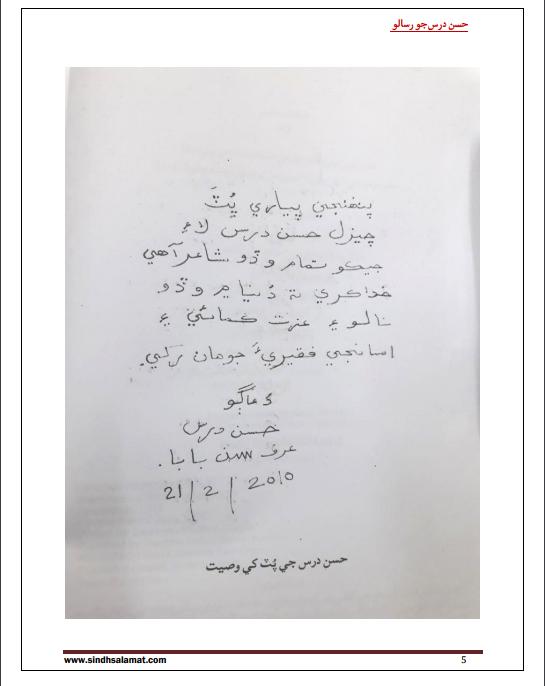 حسن درس جو رسالو
پنھنجي پياري پُٽَ
چيزل حسن درس لاءِ
جيڪو تمام وڏو شاعر آهي
خدا ڪري تہ دُنيا ۾ وڏو
نالو ۽ عزت ڪمائي ۽
اسانجي فقيريءَ جو مان رکي.
دعاگو
حسن درس
عرف سن بابا.
21/2/2010
حسن درس جي پُٽ کي وصيت
www.sindhsalamat.com 5